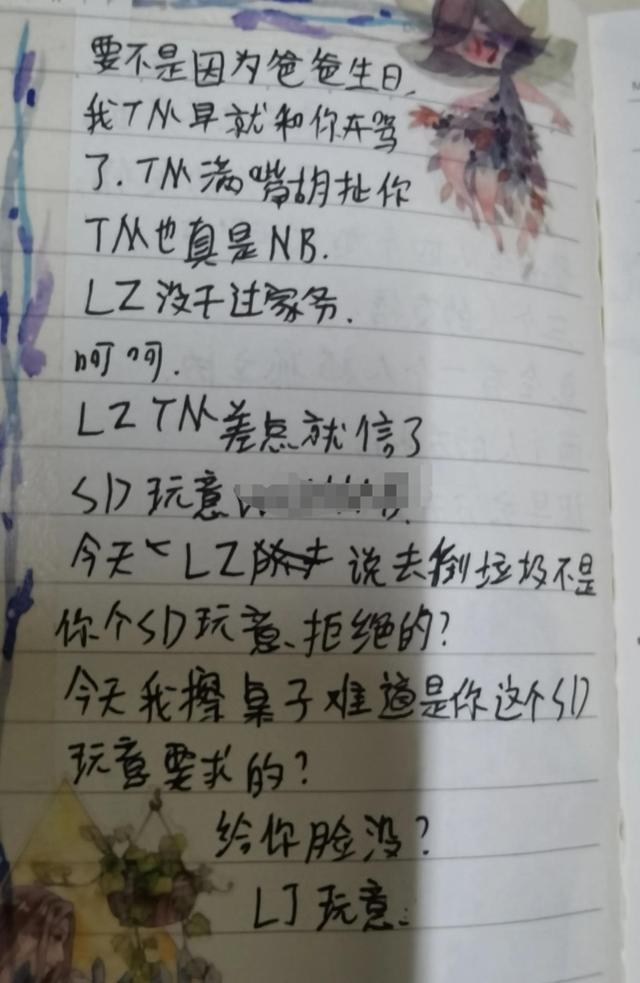 要不是因为爸爸生日,
我TM早就和你开骂
了.TM满嘴胡扯你
TM也真是NB.
LZ没干过家务.
呵呵.
LZTM差点就信了
SD玩意
今天LZ 说去倒垃圾不是
你个SD玩意拒绝的?
今天我擦桌子难道是你这个SD
玩意要求的?
给你脸没?
LJ玩意.